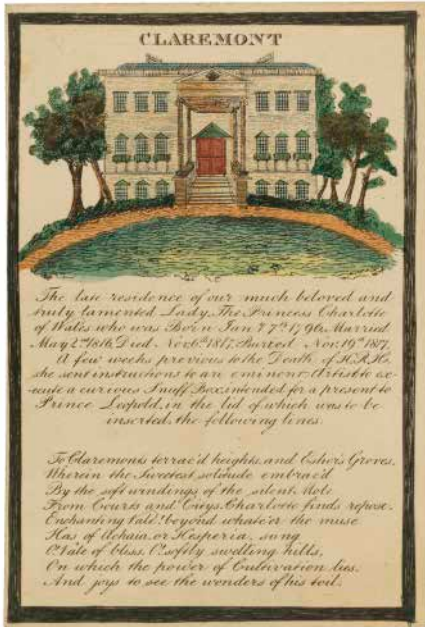 CLAREMONT
The late residence of our much beloved and
truly lamented Lady, The Princess Charlotte
of Wales who was Born Jan.y 7th 1796, Married
May 2d 1816, Died Nov.r 6th 1817, Buried Nov. 19th 1817.
A few weeks previous to the Death of H.R.H.
she sent instructions to an eminent Artist to ex-
ecute a curious Snuff Box, intended for a present to
Prince Leopold, in the lid of which was to be
inserted, the following lines.
To Claremonts terrac'd heights, and Esher's Groves,
Wherein the Sweetest solitude embrac'd
By the soft windings of the silent Mole
From Courts and Citys Charlotte finds repose.
Enchanting Vale! beyond whate'er the muse
Has of Achaia, or Hesperia, sung
O! Vale of bliss, O! softly swelling hills,
On which the power of Cultivation lies.
And joys to see the wonders of his toil.